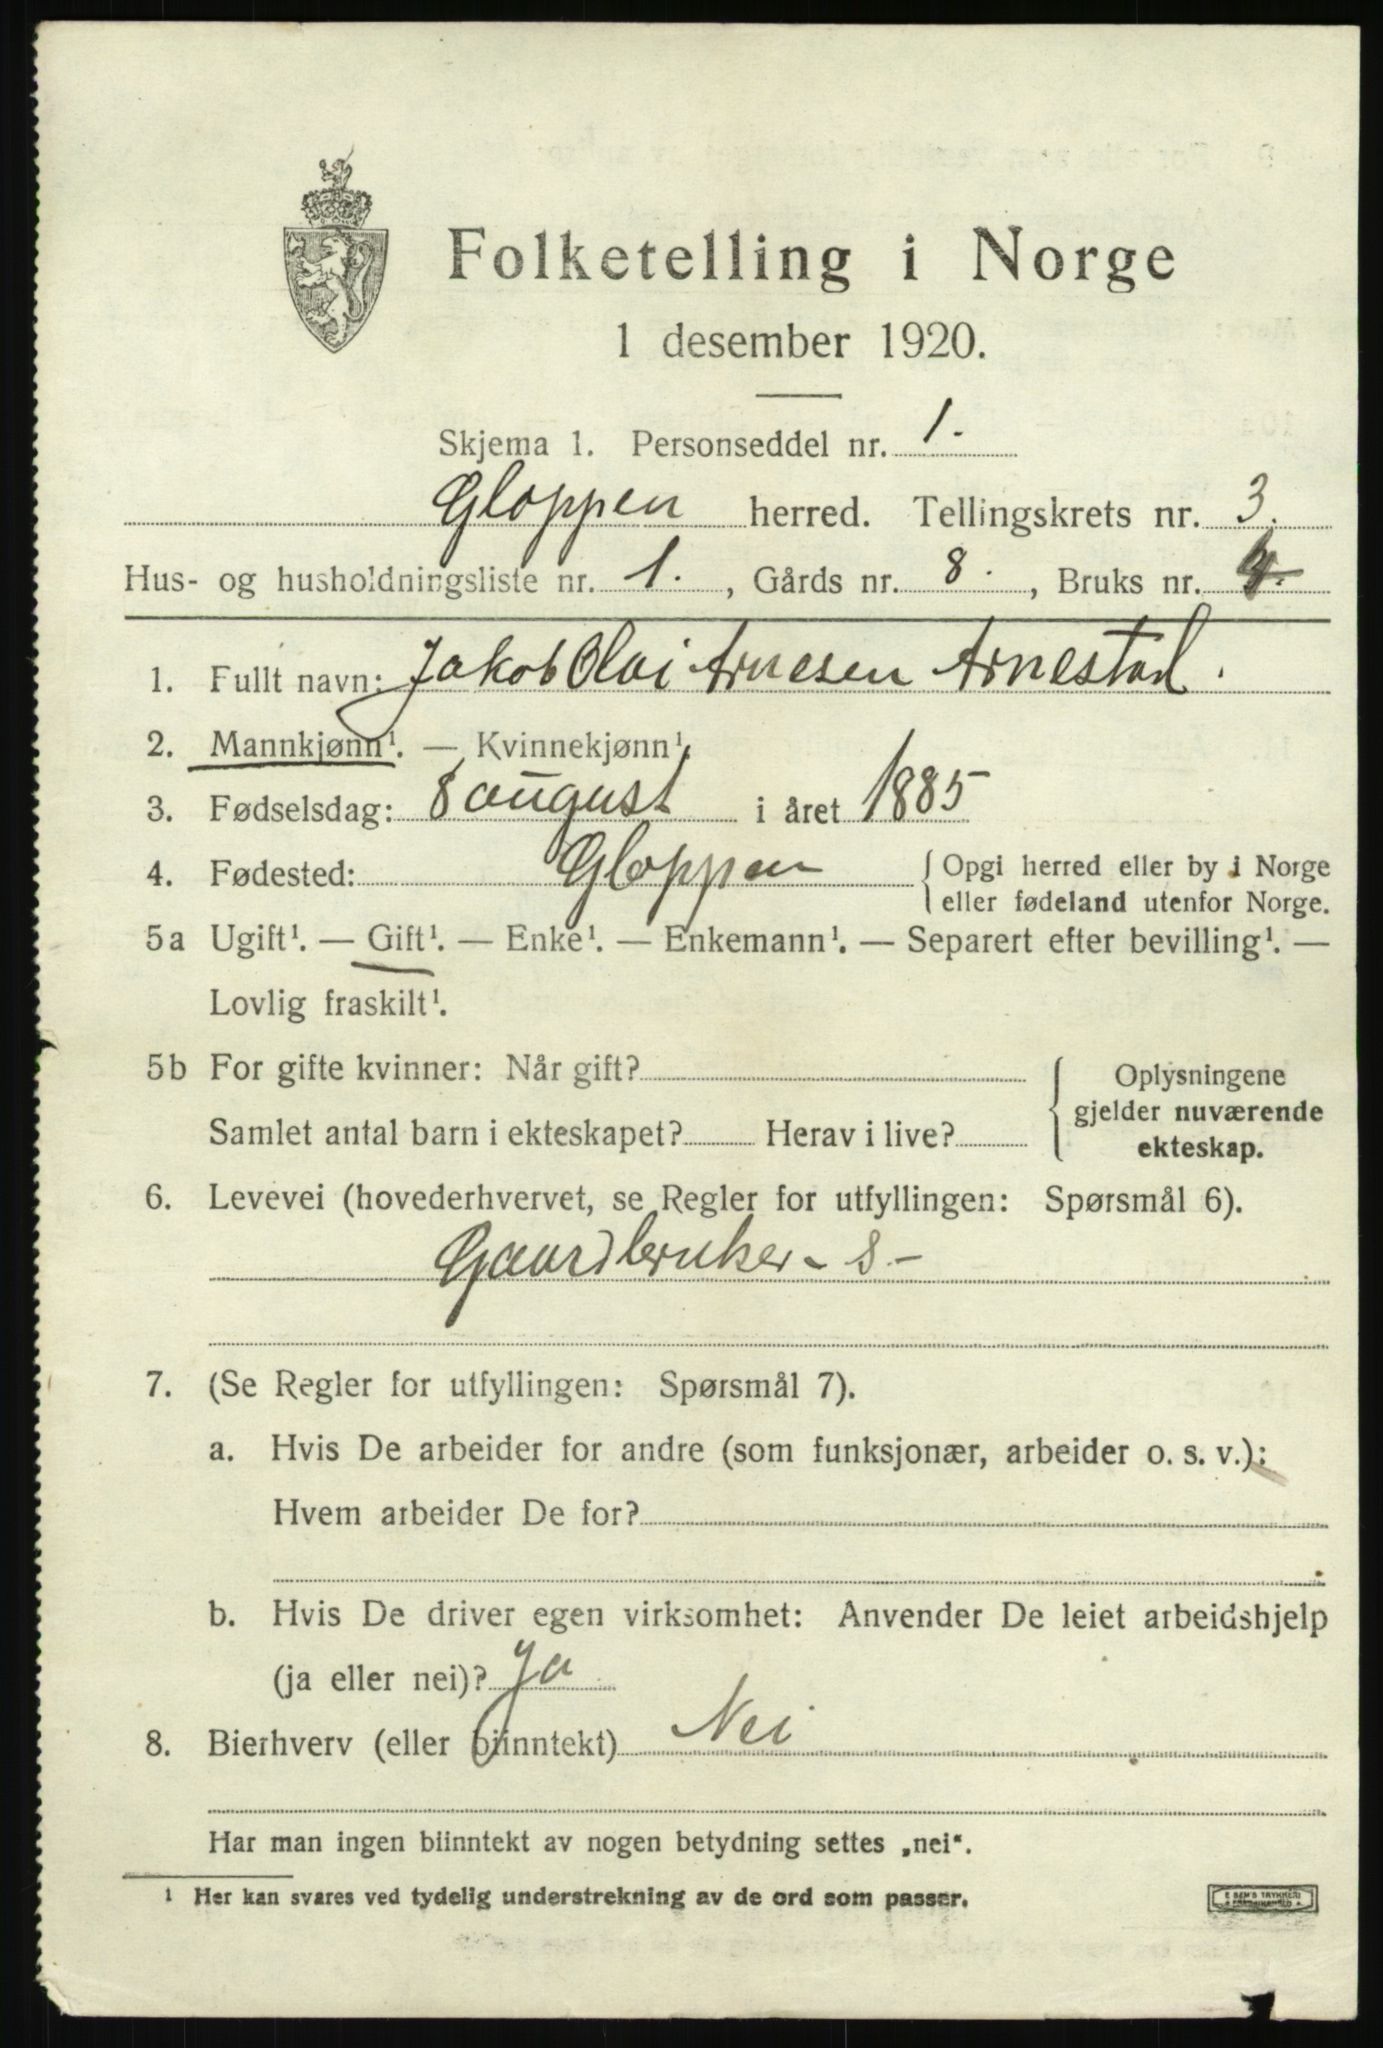 Folketelling i Norge
1 desember 1920.
Skjema 1. Personseddel nr. 1.
Gloppen herred. Tellingskrets nr. 3.
Hus- og husholdningsliste nr. 1., Gårds nr. 8., Bruks nr. 4.
1. Fullt navn: Jakob Olai Arnesen Arnestad.
2. Mannkjønn¹. — Kvinnekjønn¹.
3. Fødselsdag: 8 august i året 1885
4. Fødested: Gloppen { Opgi herred eller by i Norge
eller fødeland utenfor Norge.
5a Ugift¹. — Gift¹. — Enke¹. — Enkemann¹. — Separert efter bevilling¹. —
Lovlig fraskilt¹.
5b For gifte kvinner: Når gift? { Oplysningene
gjelder nuværende
Samlet antal barn i ekteskapet? Herav i live?
ekteskap.
6. Levevei (hovederhvervet, se Regler for utfyllingen: Spørsmål 6).
Gaardbruker - s -
7. (Se Regler for utfyllingen: Spørsmål 7).
a. Hvis De arbeider for andre (som funksjonær, arbeider o. s. v.):
Hvem arbeider De for?
b. Hvis De driver egen virksomhet: Anvender De leiet arbeidshjelp
(ja eller nei)? Ja
8. Bierhverv (eller biinntekt) Nei
Har man ingen biinntekt av nogen betydning settes „nei“.
1 Her kan svares ved tydelig understrekning av de ord som passer.